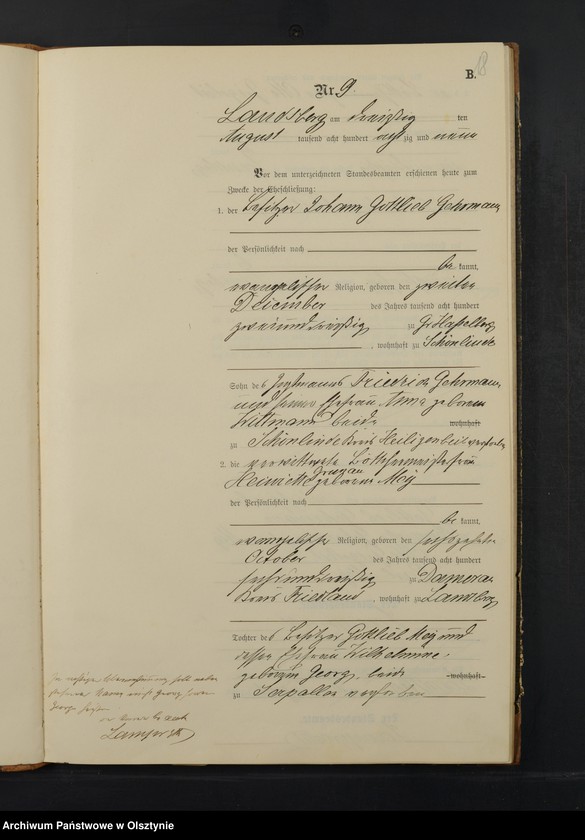 B.
18
Nr. 9
Landsberg am dreißig ten
August tausend acht hundert acht zig und neun
Vor dem unterzeichneten Standesbeamten erschienen heute zum
Zwecke der Eheschließung:
1. der Besitzer Johann Gottlieb Gehrmann
der Persönlichkeit nach
be kannt,
evangelischer Religion, geboren den zweiten
Dezember des Jahres tausend acht hundert
zweiunddreißig zu Gr.
, wohnhaft zu Schönlinde
Sohn des Friedrich Gehrmann
und seiner Ehefrau Anna geborenen
Wittmann beide wohnhaft
zu Schönlinde Kreis Heiligenbeil verstorben
2. die verwittwete Böttchermeisterfrau
geborene Mey
der Persönlichkeit nach
be kannt,
evangelischer Religion, geboren den sechszehnten
October des Jahres tausend acht hundert
sechsunddreißig zu Damerau
Kreis Friedland, wohnhaft zu Landsberg
Tochter des Besitzer Gottlieb Mey und
dessen Ehefrau Wilhelmine
geborene Georg, beide wohnhaft
zu Serpallen verstorben
Georg
Archiwum Państwowe w Olsztynie